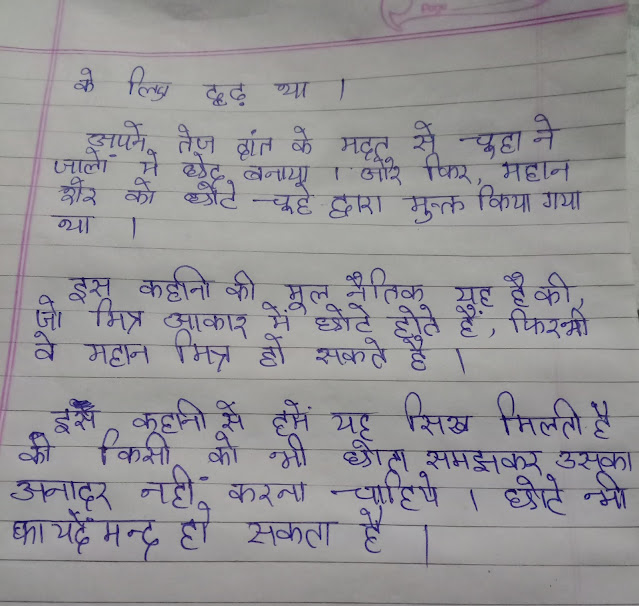 Page
के लिए दृढ़ था ।
अपने तेज दांत के मदत से चूहा ने
जालो में छेद बनाया । और फिर, महान
शेर को छोटे चूहे द्वारा मुक्त किया गया
था ।
इस कहानि की मूल नैतिक यह है की,
जो मित्र आकार में छोटे होते है, फिरभी
वे महान मित्र हो सकते है ।
इस कहानी से हमें यह सिख मिलती है
की किसी को भी छोटा समझकर उसका
अनादर नहीं करना चाहिये । छोटे भी
फायदेमन्द हो सकता है ।